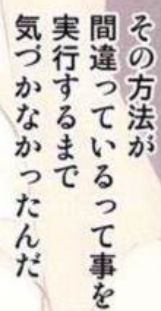 その方法が
間違っているって事を
実行するまで
気づかなかったんだ